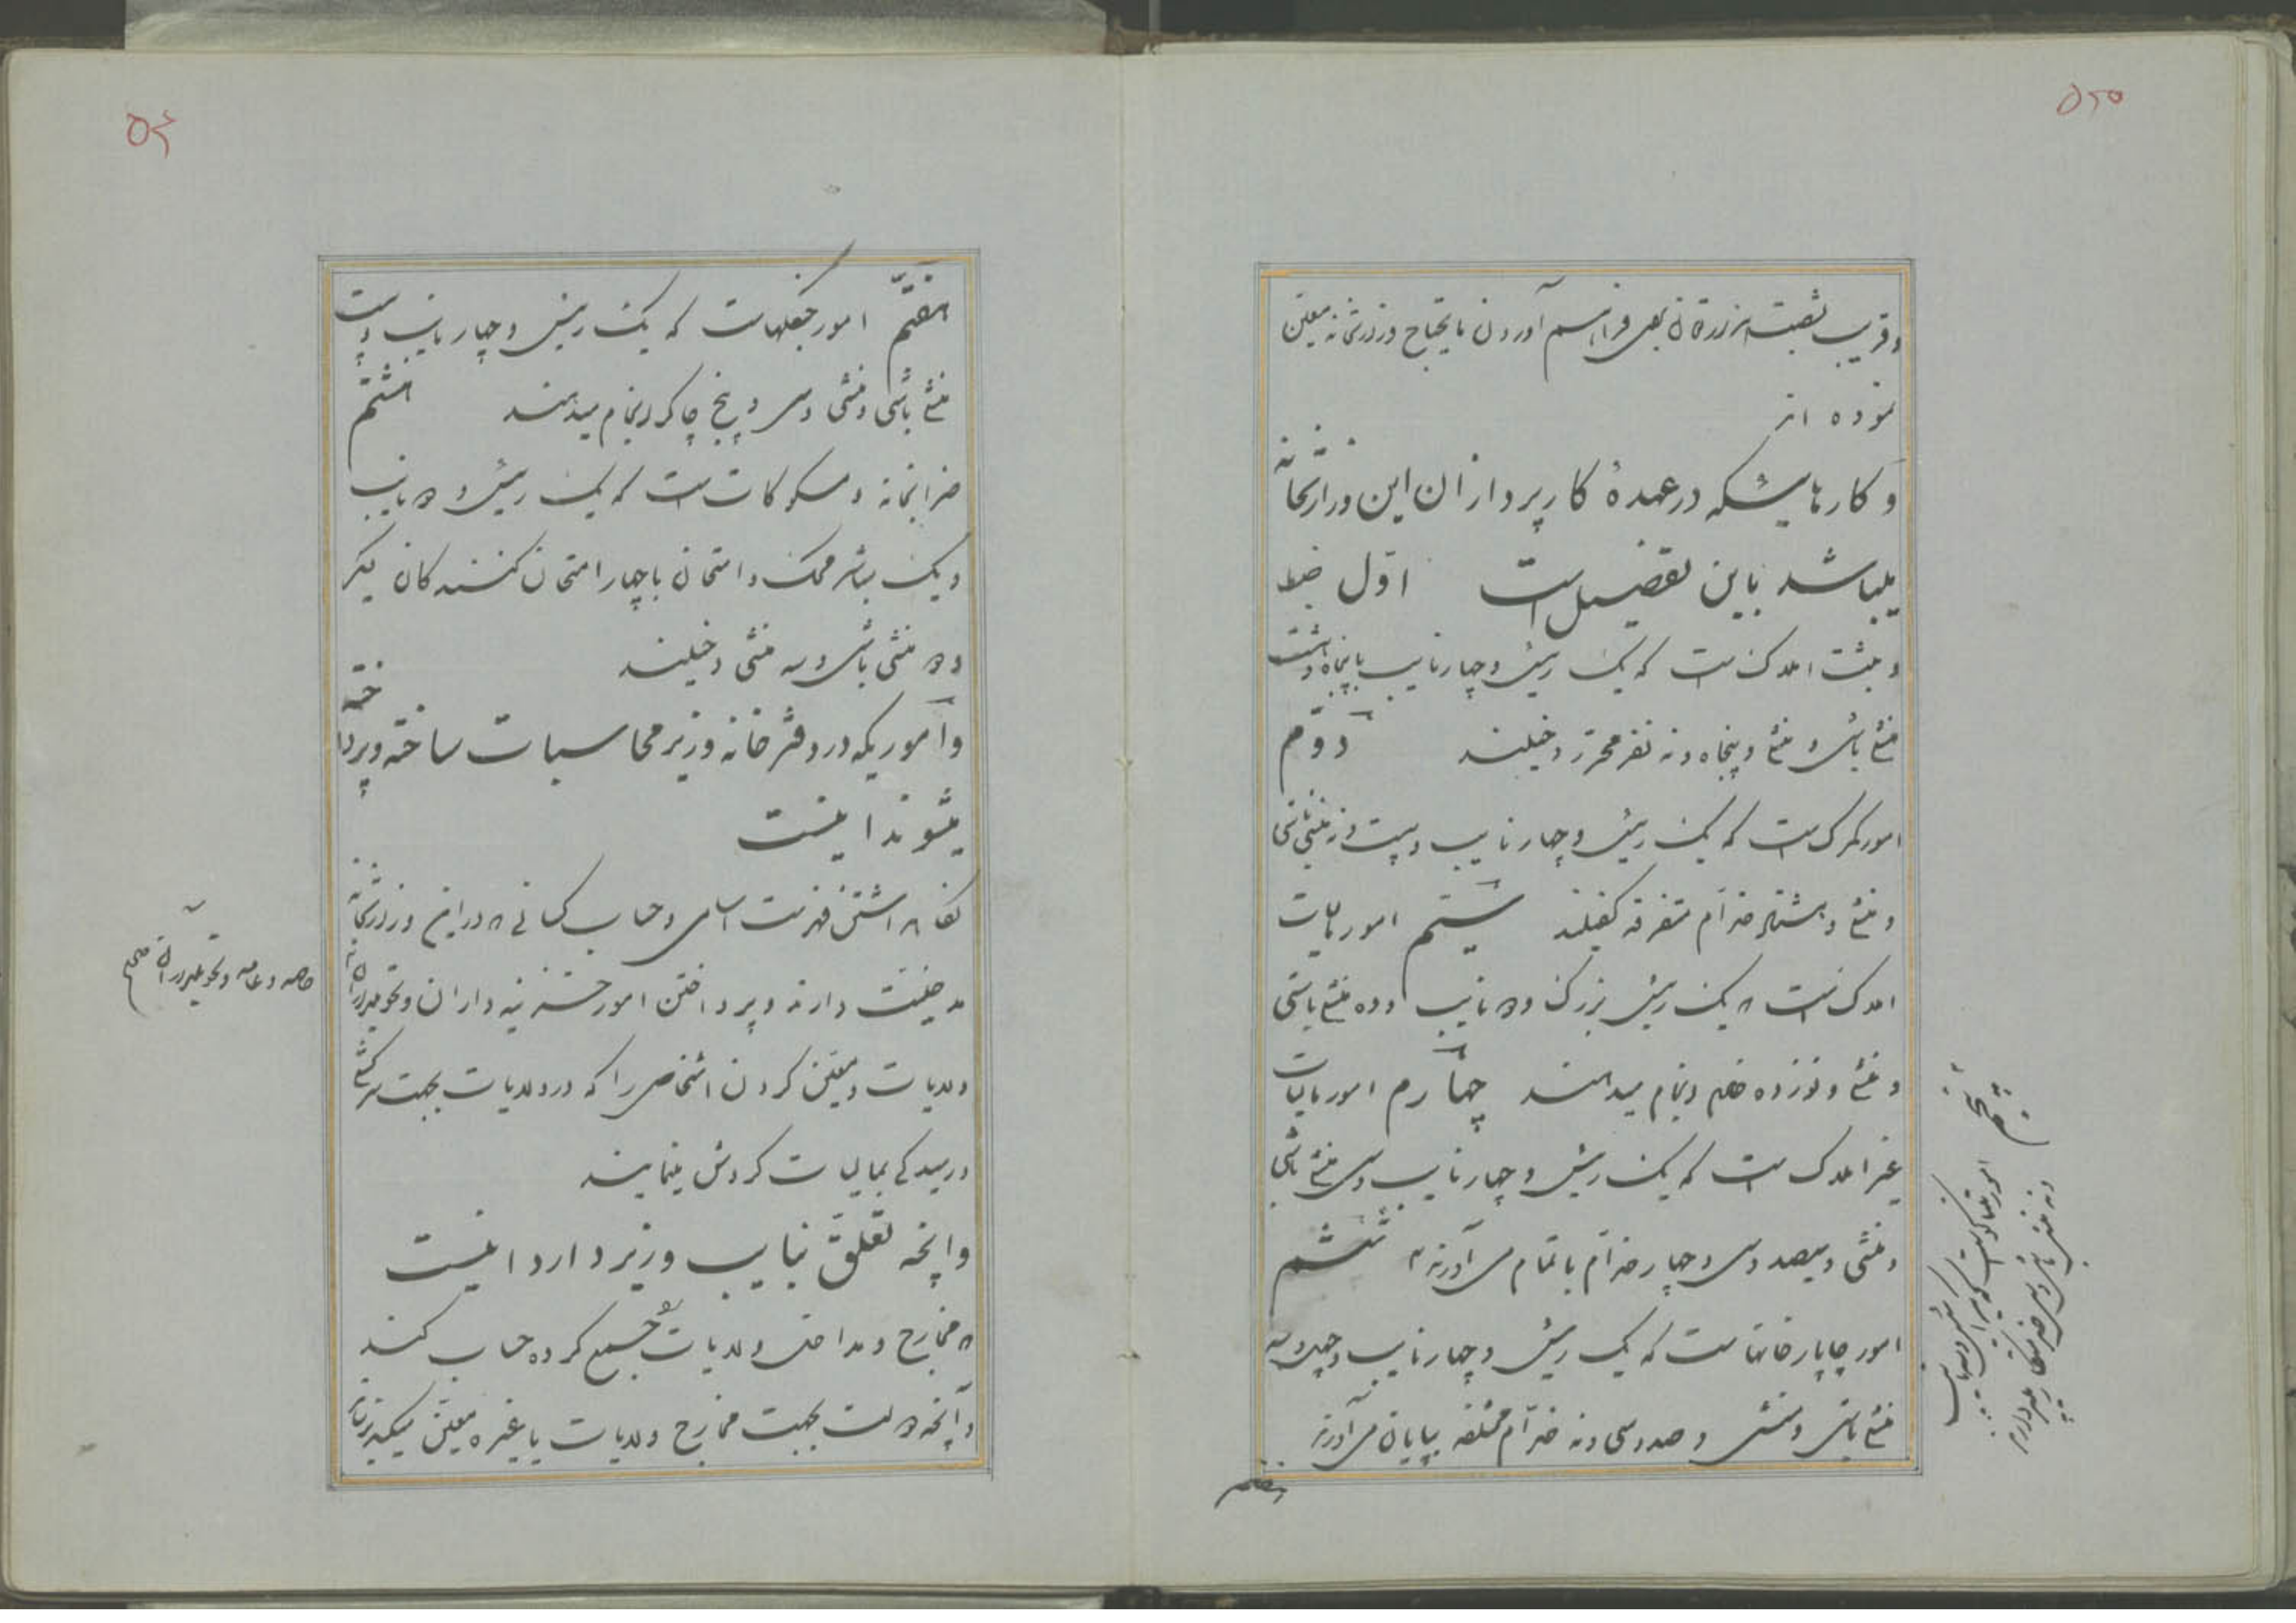 ۵۲۵
و قریب بشصت هزار تومان بجهت فراهم آوردن مایحتاج وزارتخانه معین
نموده اند
و کارهائیکه در عهدهٔ کارپردازان این وزارتخانه
میباشد باین تفصیل است اوّل ضبط
و ثبت املاک است که یک رئیس و چهار نایب با پنجاه و هشت
منشی باشی و منشی و پنجاه و نه نفر محرر دخیلند دوّم
امور گمرک است که یک رئیس و چهار نایب و بیست و نه منشی باشی
و منشی و خدّام متفرقه کفیلند سیّم امور مالیات
املاک است که یک رئیس بزرگ و دو نایب و ده منشی باشی
و منشی و نوزده خادم انجام میدهند چهارم امور مالیات
غیر املاک است که یک رئیس و چهار نایب و سی منشی باشی
و منشی و سیصد و سی و چهار خدّام باتمام می آورند ششم
امور چاپارخانها است که یک رئیس و چهار نایب و چهل و سه
منشی باشی و منشی و صد و سی و نه خدّام مختلفه بپایان می آورند
هفتم
پنجم
۵۲۶
هفتم امور جنگلهاست که یک رئیس و چهار نایب و بیست
منشی باشی و منشی و سی و پنج چاکر انجام میدهند هشتم
ضرابخانه و مسکوکات است که یک رئیس و دو نایب
و یک مباشر محک و امتحان با چهار امتحان کنندگان دیگر
و دو منشی باشی و سه منشی دخیلند
و اموریکه در دفترخانه وزیر محاسبات ساخته و پرداخته
میشوند اینست
نگاهداشتن فهرست اسامی و حساب کسانی که در این وزارتخانه
مدخلیت دارند و پرداختن امور خزینه داران و تحویلداران
ولایات و معین کردن اشخاصی را که در ولایات بجهت سرکشی
و رسیدگی بمالیات گردش مینمایند
و آنچه تعلّق بنایب وزیر دارد اینست
که مخارج و مداخل ولایات را جمع کرده حساب کند
و آنچه دولت بجهت مخارج ولایات یا غیره معین میکند
خاصه و عامه و تحویلداران صح